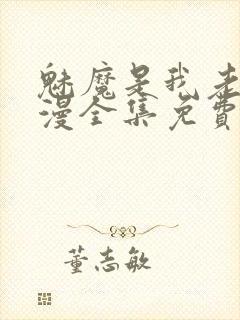 魅魔是我老
漫全集免费
董志敏